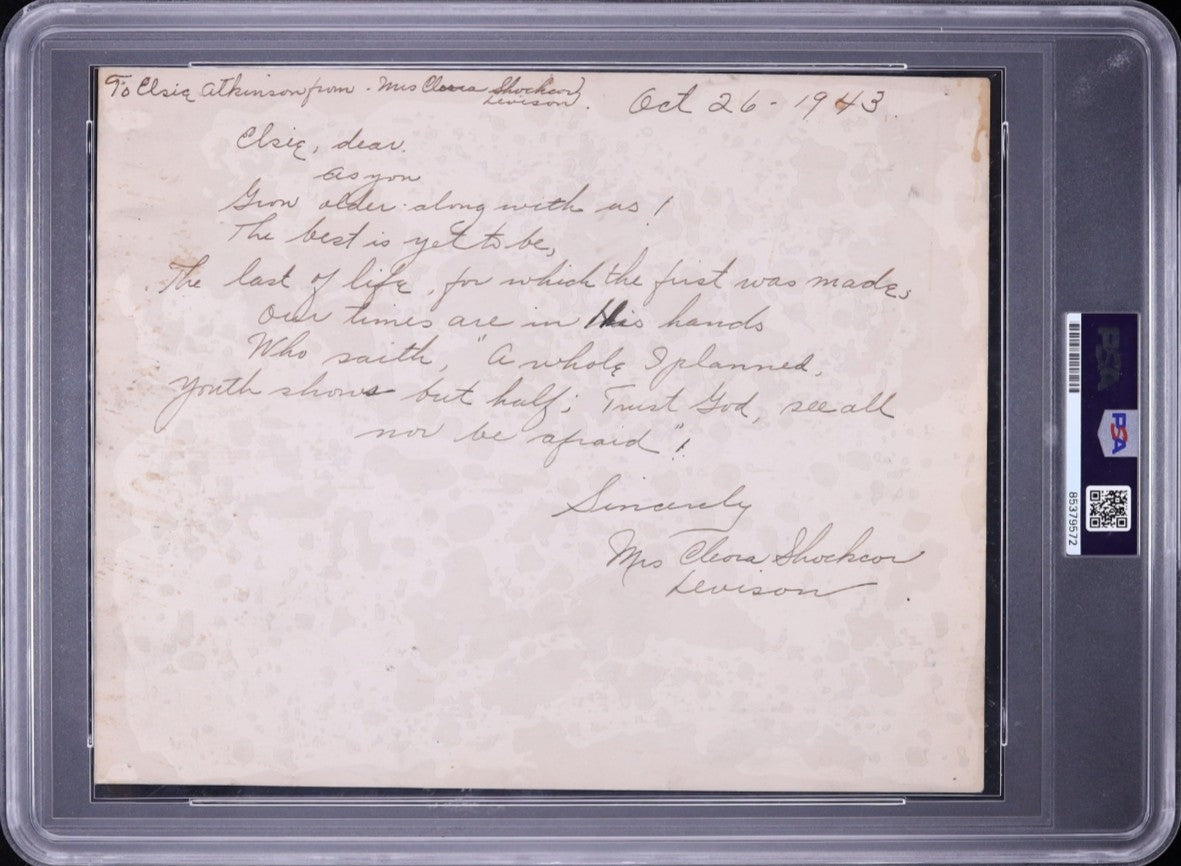 To Elsie Atkinson from - Mrs Cleora Shockcor
Levison.
Oct 26 - 1943.
Elsie, dear.
As you
Grow older along with us!
The best is yet to be,
The last of life, for which the first was made;
Our times are in His hands
Who saith, "A whole I planned,
Youth shows but half; Trust God, see all
nor be afraid"!
Sincerely
Mrs Cleora Shockcor
Levison
PSA
PSA
85379572